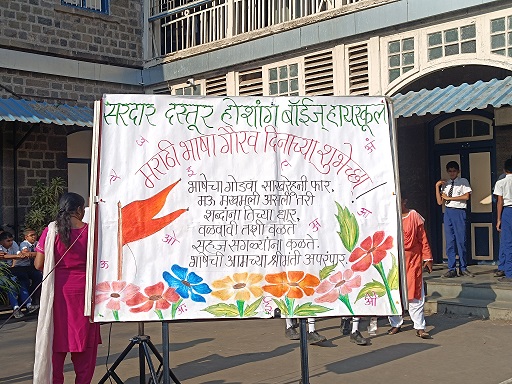 सरदार दस्तूर होशांग बॉईज् हायस्कूल
मराठी भाषा गौरव दिनाच्या शुभेच्छा!
भाषेचा गोडवा साखरेहूनी फार,
मऊ मखमली असली तरी
शब्दांना तिच्या धार,
वळवावी तशी वळते
सहज सगळ्यांना कळते.
भाषेची आमच्या श्रीमंती अपरंपार.